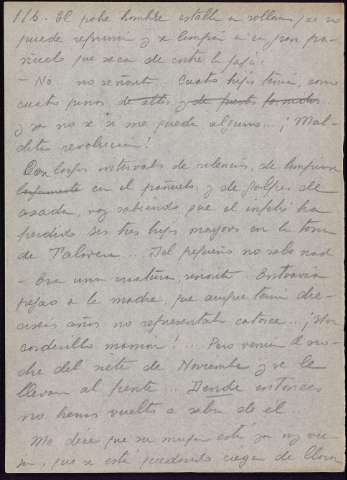 116. El pobre hombre estalla en sollozos, que no
puede reprimir y se limpia en un gran pa-
ñuelo que se saca de entre la faja.
- No, no señorit. Cuatro hijos tenía, como
cuatro pinos, de altos y de puesto formados
y ya no se si me queda alguno... ¡Mal-
dita revolución!
Con largos intervalos de silencios, de limpiarse
largamente en el pañuelo, y de golpes de
azada, voy sabiendo que el infeliz ha
perdido sus tres hijos mayores en la toma
de Talavera... Del pequeño no sabe nada
- Era una criatura, señorit. Entoavía
pegao a la madre, que aunque tenía dieci-
seis años no representaba catorce... ¡Un
corderillo mamón!... Pero vinieron la no-
che del siete de Noviembre y se le
llevaron al frente... Dende entonces
no hemos vuelto a saber de él...
Me dice que su mujer está ya muy vie-
ja, que se está quedando ciega de llorar